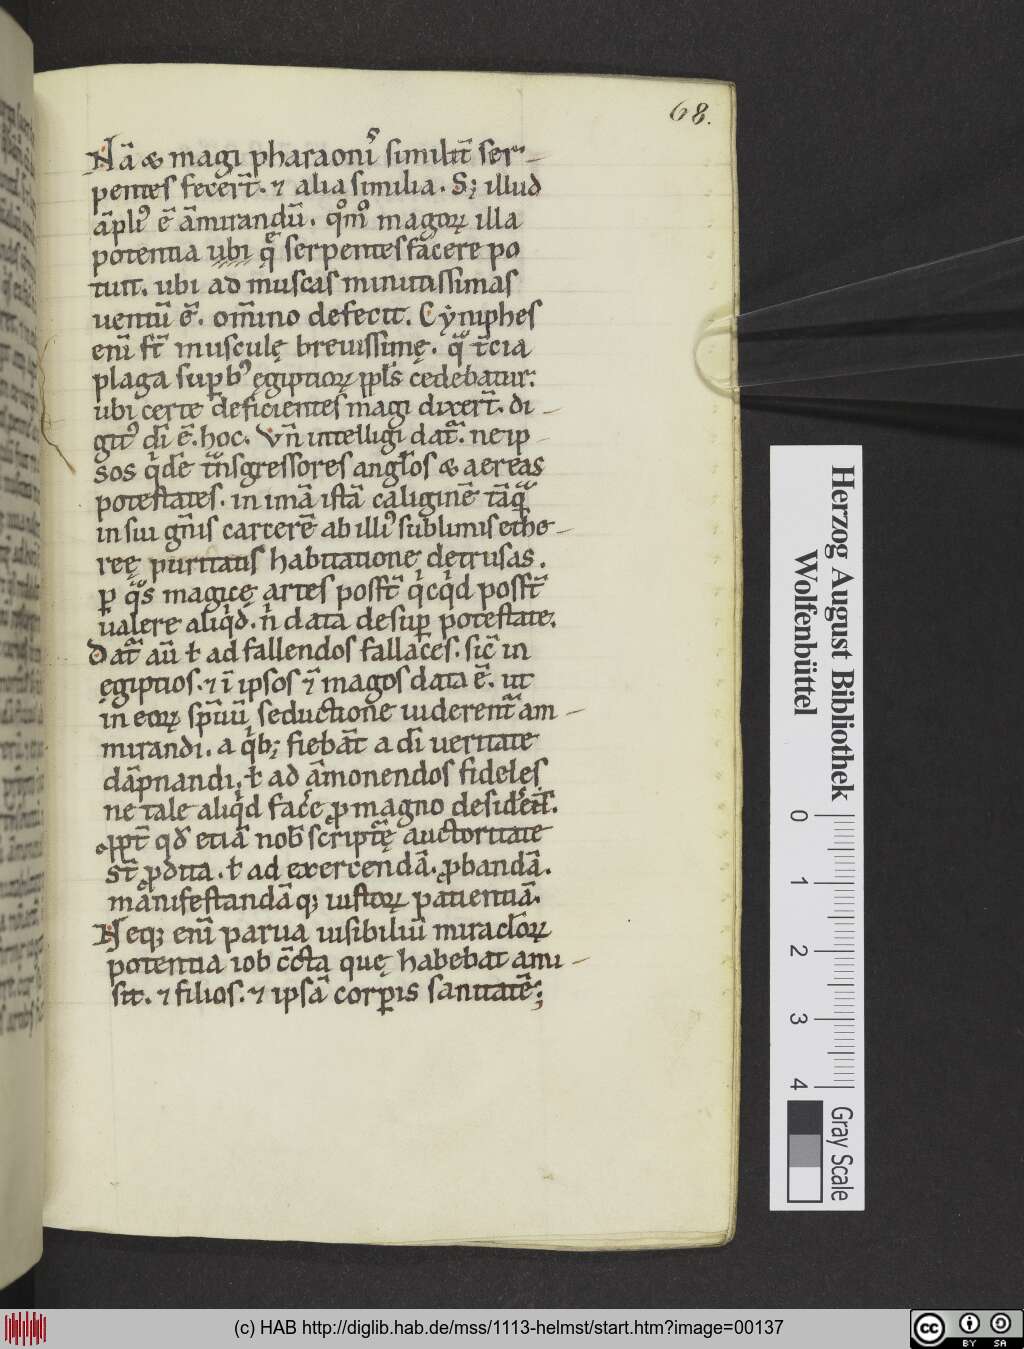 68.
Nā & magi pharaonis similit̄ ser-
pentes fecer̄t. ⁊ alia similia. S; illud
āpliꝰ ē āmirandū. qͦmͦ magoꝝ illa
potentia ubi q̨̄ serpentes facere po
tuit. ubi ad muscas minutissimas
uentū ē. om̄ino defecit. Cyniphes
enī st̄ musculę breuissimę. qᷓ t̄cia
plaga suꝑbꝰ egiptioꝝ ꝓpl̄s cedebatur.
ubi certe deficientes magi dixer̄t. di-
gitꝰ dī ē. hoc. Vn̄ intelligi datᷓ. ne ip-
sos qͥdē tᷓnsgressores angl̄os & aereas
potestates. in imā istā caliginē tāqᷓ
in sui gn̄is carcerē ab illiꝰ sublimis ethe-
reę puritatis habitatione detrusas.
ꝑ qͦs magicę artes poss̄t qͥcqͥd poss̄t
ualere aliqͥd. nͥ data desuꝑ potestate.
Datᷓ aū ł ad fallendos fallaces. sic̄ in
egiptios. ⁊ ī ipsos ⁊̄ magos data ē. ut
in eoꝝ sp̄uū seductione uiderentᷓ am-
mirandi. a qͥb; fiebāt a dī ueritate
dāpnandi. ł ad āmonendos fideles
ne tale aliqͥd facͤe ꝓ magno desidēt.
ꝓpt̄ qd̄ etiā nob̄ scriptᷓę auctoritate
st̄ ꝓdita. ł ad exercendā. ꝓbandā.
manifestandāq; iustoꝝ patientiā.
Neq; enī parua uisibiliū miracl̄oꝝ
potentia iob cūcta quę habebat ami-
sit. ⁊ filios. ⁊ ipsā corꝑis sanitatē;
Herzog August Bibliothek
Wolfenbüttel
0 1 2 3 4
Gray Scale
(c) HAB http://diglib.hab.de/mss/1113-helmst/start.htm?image=00137
cc BY SA